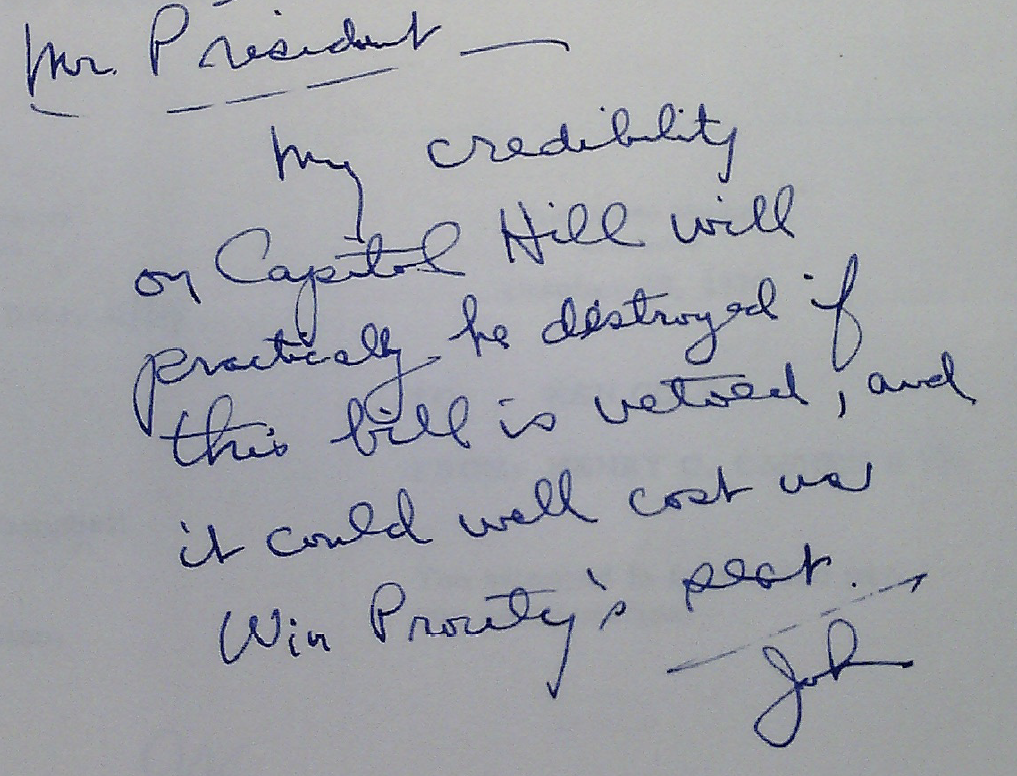 Mr. President —
My credibility
on Capitol Hill will
practically be destroyed if
this bill is vetoed, and
it could well cost us
Win Prouty's seat.
John